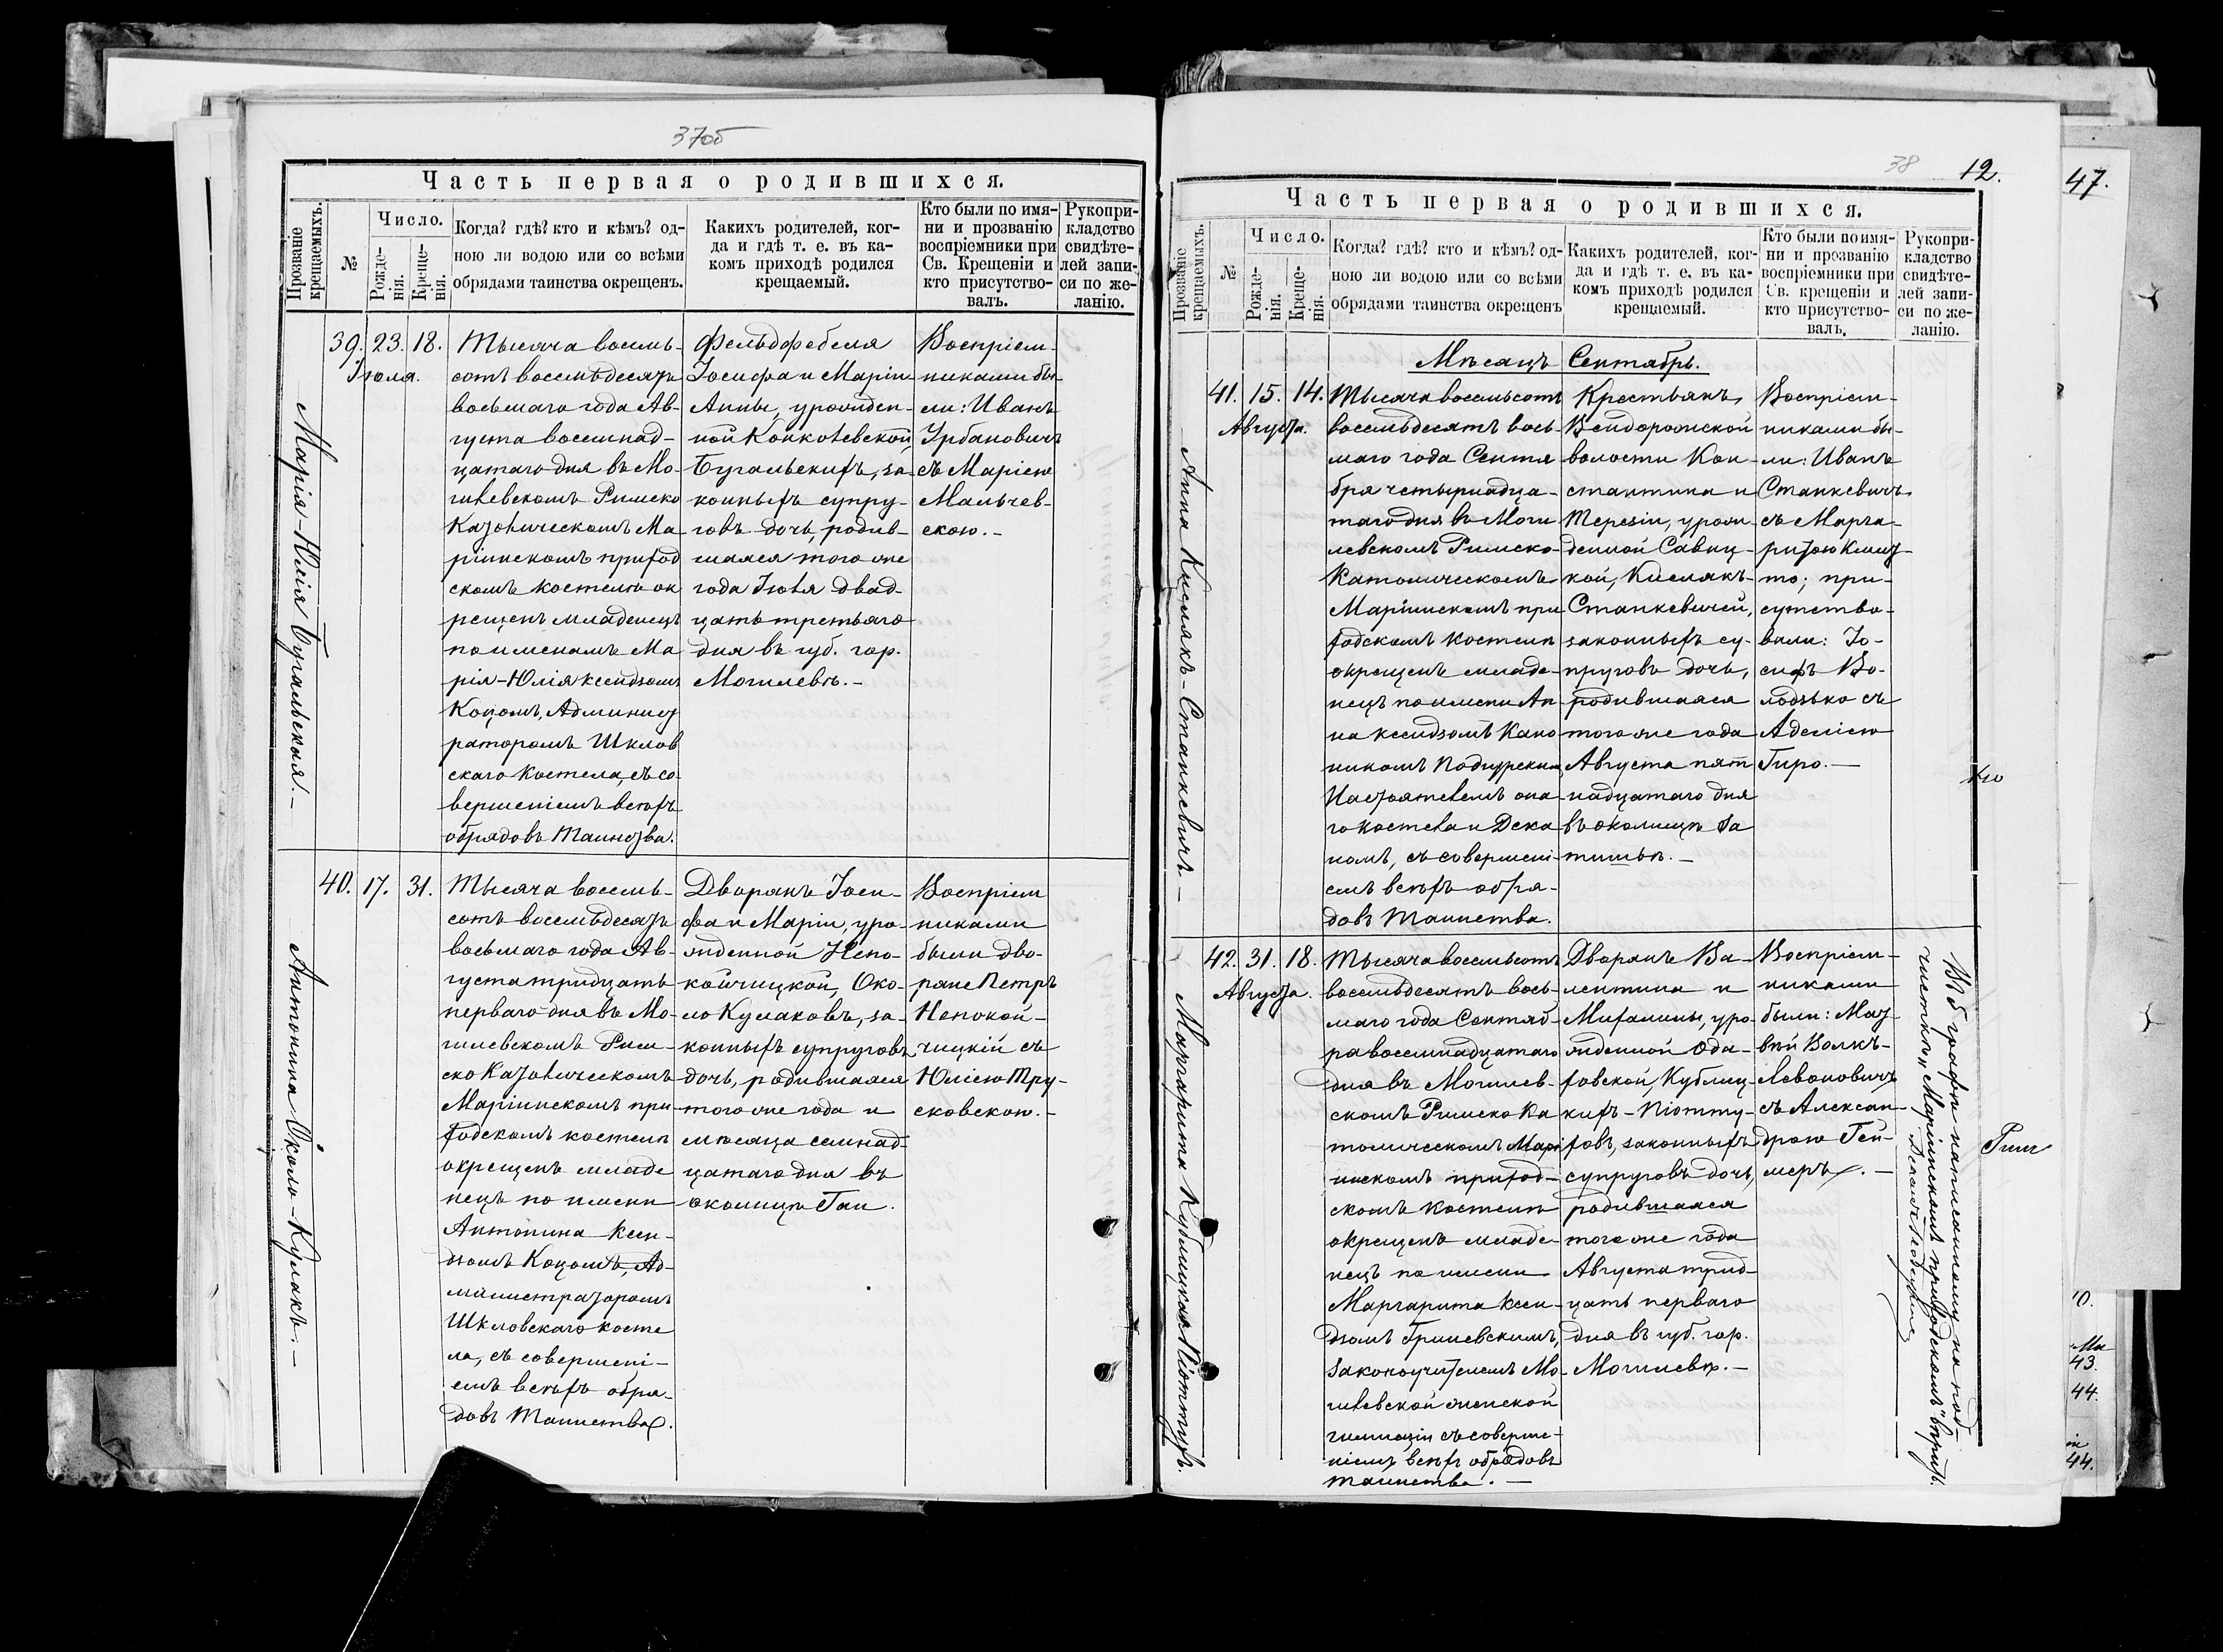 37об
Часть первая о родившихся.
Прозваніе крещаемыхъ.
№
Число.
Рожде-
нія.
Креще-
нія.
Когда? гдѣ? кто и кѣмъ? од-
ною ли водою или со всѣми
обрядами таинства окрещенъ.
Какихъ родителей, ког-
да и гдѣ т. е. въ ка-
комъ приходѣ родился
крещаемый.
Кто были по имя-
ни и прозванію
воспріемники при
Св. Крещеніи и
кто присутство-
валъ.
Рукопри-
кладство
свидѣте-
лей запи-
си по же-
ланію.
Марія-Юлія Бугальская.-
39. 23. 18.
Іюля.
Тысяча восемь-
сотъ восемьдесятъ
восьмаго года Ав-
густа восемнад-
цатаго дня въ Мо-
гилевскомъ Римско
Католическомъ Ма-
ріинскомъ приход
скомъ костелѣ ок
рещенъ младенецъ
по именамъ Ма
рія-Юлія ксендзомъ
Коцомъ, Админист
раторомъ Шклов
скаго Костела, съ со-
вершеніемъ всѣхъ
обрядовъ Таинства.
Фельдфебеля
Іосифа и Маріи
Анны, урожден-
ной Конколевской,
Бугальскихъ, за-
конныхъ супру-
говъ дочь, родив-
шаяся того же
года Іюля двад-
цать третьяго
дня въ губ. гор.
Могилевѣ.-
Воспріем-
никами бы-
ли: Иванъ
Урбановичъ
съ Маріею
Мальчев-
скою.-
Антонина Около-Кулакъ.-
40. 17. 31.
Тысяча восемь-
сотъ восемьдесятъ
восьмаго года Ав-
густа тридцать
перваго дня въ Мо-
гилевскомъ Рим-
ско Католическомъ
Маріинскомъ при
ходскомъ костелѣ
окрещенъ младе
нецъ по имени
Антонина Ксен-
дзомъ Коцомъ, Ад-
министраторомъ
Шкловскаго косте
ла, съ совершені-
емъ всѣхъ обря-
довъ Таинства.
Дворянъ Іоси-
фа и Маріи, уро-
жденной Непо-
койчицкой, Око-
ло Кулаковъ, за-
конныхъ супруговъ
дочь, родившаяся
того же года и
мѣсяца семнад-
цатаго дня въ
околицѣ Гаи.
Воспріем
никами
были дво-
ряне Петръ
Непокой-
чицкій съ
Юліею Тру-
сковскою.-
38
12.
Часть первая о родившихся.
Прозваніе крещаемыхъ.
№
Число.
Рожде-
нія.
Креще-
нія.
Когда? гдѣ? кто и кѣмъ? од-
ною ли водою или со всѣми
обрядами таинства окрещенъ
Какихъ родителей, ког-
да и гдѣ т. е. въ ка-
комъ приходѣ родился
крещаемый.
Кто были по имя-
ни и прозванію
воспріемники при
Св. крещеніи и
кто присутство-
валъ.
Рукопри-
кладство
свидѣте-
лей запи-
си по же-
ланію.
Мѣсяцъ Сентябрь.
Анна Кислякъ-Станкевичъ.-
41. 15. 14.
Августа.
Тысяча восемьсотъ
восемьдесятъ вось-
маго года Сентя
бря четырнадца-
таго дня въ Моги
левскомъ Римско-
Католическомъ
Маріинскомъ при
ходскомъ костелѣ
окрещенъ младе-
нецъ по имени Ан
на ксендзомъ Кано
никомъ Подгурским
Настоятелемъ она
го костела и Дека
номъ, съ совершені-
емъ всѣхъ обря-
довъ Таинства.
Крестьянъ,
Вендорожской
волости Кон-
стантина и
Терезіи, урож-
денной Савиц-
кой, Кислякъ-
Станкевичей,
законныхъ су-
пруговъ дочь,
родившаяся
того же года
Августа пят
надцатаго дня
въ околицѣ За
тишьѣ.-
Воспріем-
никами бы-
ли: Иванъ
Станкевичъ
съ Марга-
ритою Климу-
то; при-
сутство-
вали: Іо-
сифъ Во-
лодзько съ
Аделіею
Гиро.-
Маргарита Кублицкая Піоттухъ.
42. 31. 18.
Августа.
Тысяча восемьсотъ
восемьдесятъ вось-
маго года Сентяб-
ра восемнадцатаго
дня въ Могилев-
скомъ Римско Ка
толическомъ Марі
инскомъ приход-
скомъ Костелѣ
окрещенъ младе-
нецъ по имени
Маргарита Ксен-
дзомъ Гриневскимъ,
Законоучителемъ Мо-
гилевской женской
гимназіи съ соверше-
ніемъ всѣхъ обрядовъ
таинства.-
Дворянъ Ва-
лентина и
Михалины, уро-
жденной Ода-
ховской, Кублиц-
кихъ-Піотту-
ховъ, законныхъ
супруговъ дочь,
родившаяся
того же года
Августа трид-
цать перваго
дня въ губ. гор.
Могилевѣ.-
Воспріем-
никами
были: Мат-
вѣй Волкъ-
Левоновичъ
съ Алексан-
дрою Гей-
меръ.-
Въ графѣ написанному на под-
чисткѣ „Маріинскомъ приходскомъ" вѣрить.
47.
43.
44.
44.